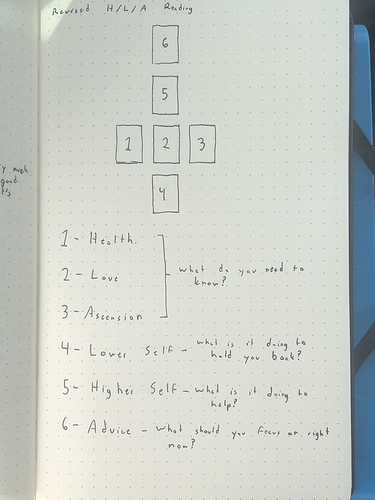 Revised H/L/A Reading
6
5
1 2 3
4
y much
good
1 - Health
2 - Love
what do you need to
know?
3 - Ascension
4 - Lower Self - what is it doing to
hold you back?
5 - Higher Self - what is it doing to
help?
6 - Advice - what should you focus on right
now?